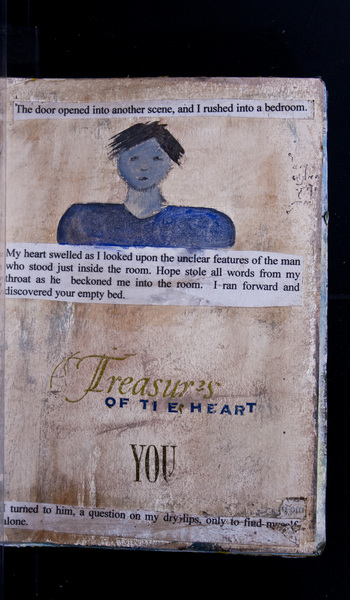 The door opened into another scene, and I rushed into a bedroom.
My heart swelled as I looked upon the unclear features of the man
who stood just inside the room. Hope stole all words from my
throat as he beckoned me into the room. I ran forward and
discovered your empty bed.
Treasures
OF THE HEART
YOU
I turned to him, a question on my dry lips, only to find myself
alone.